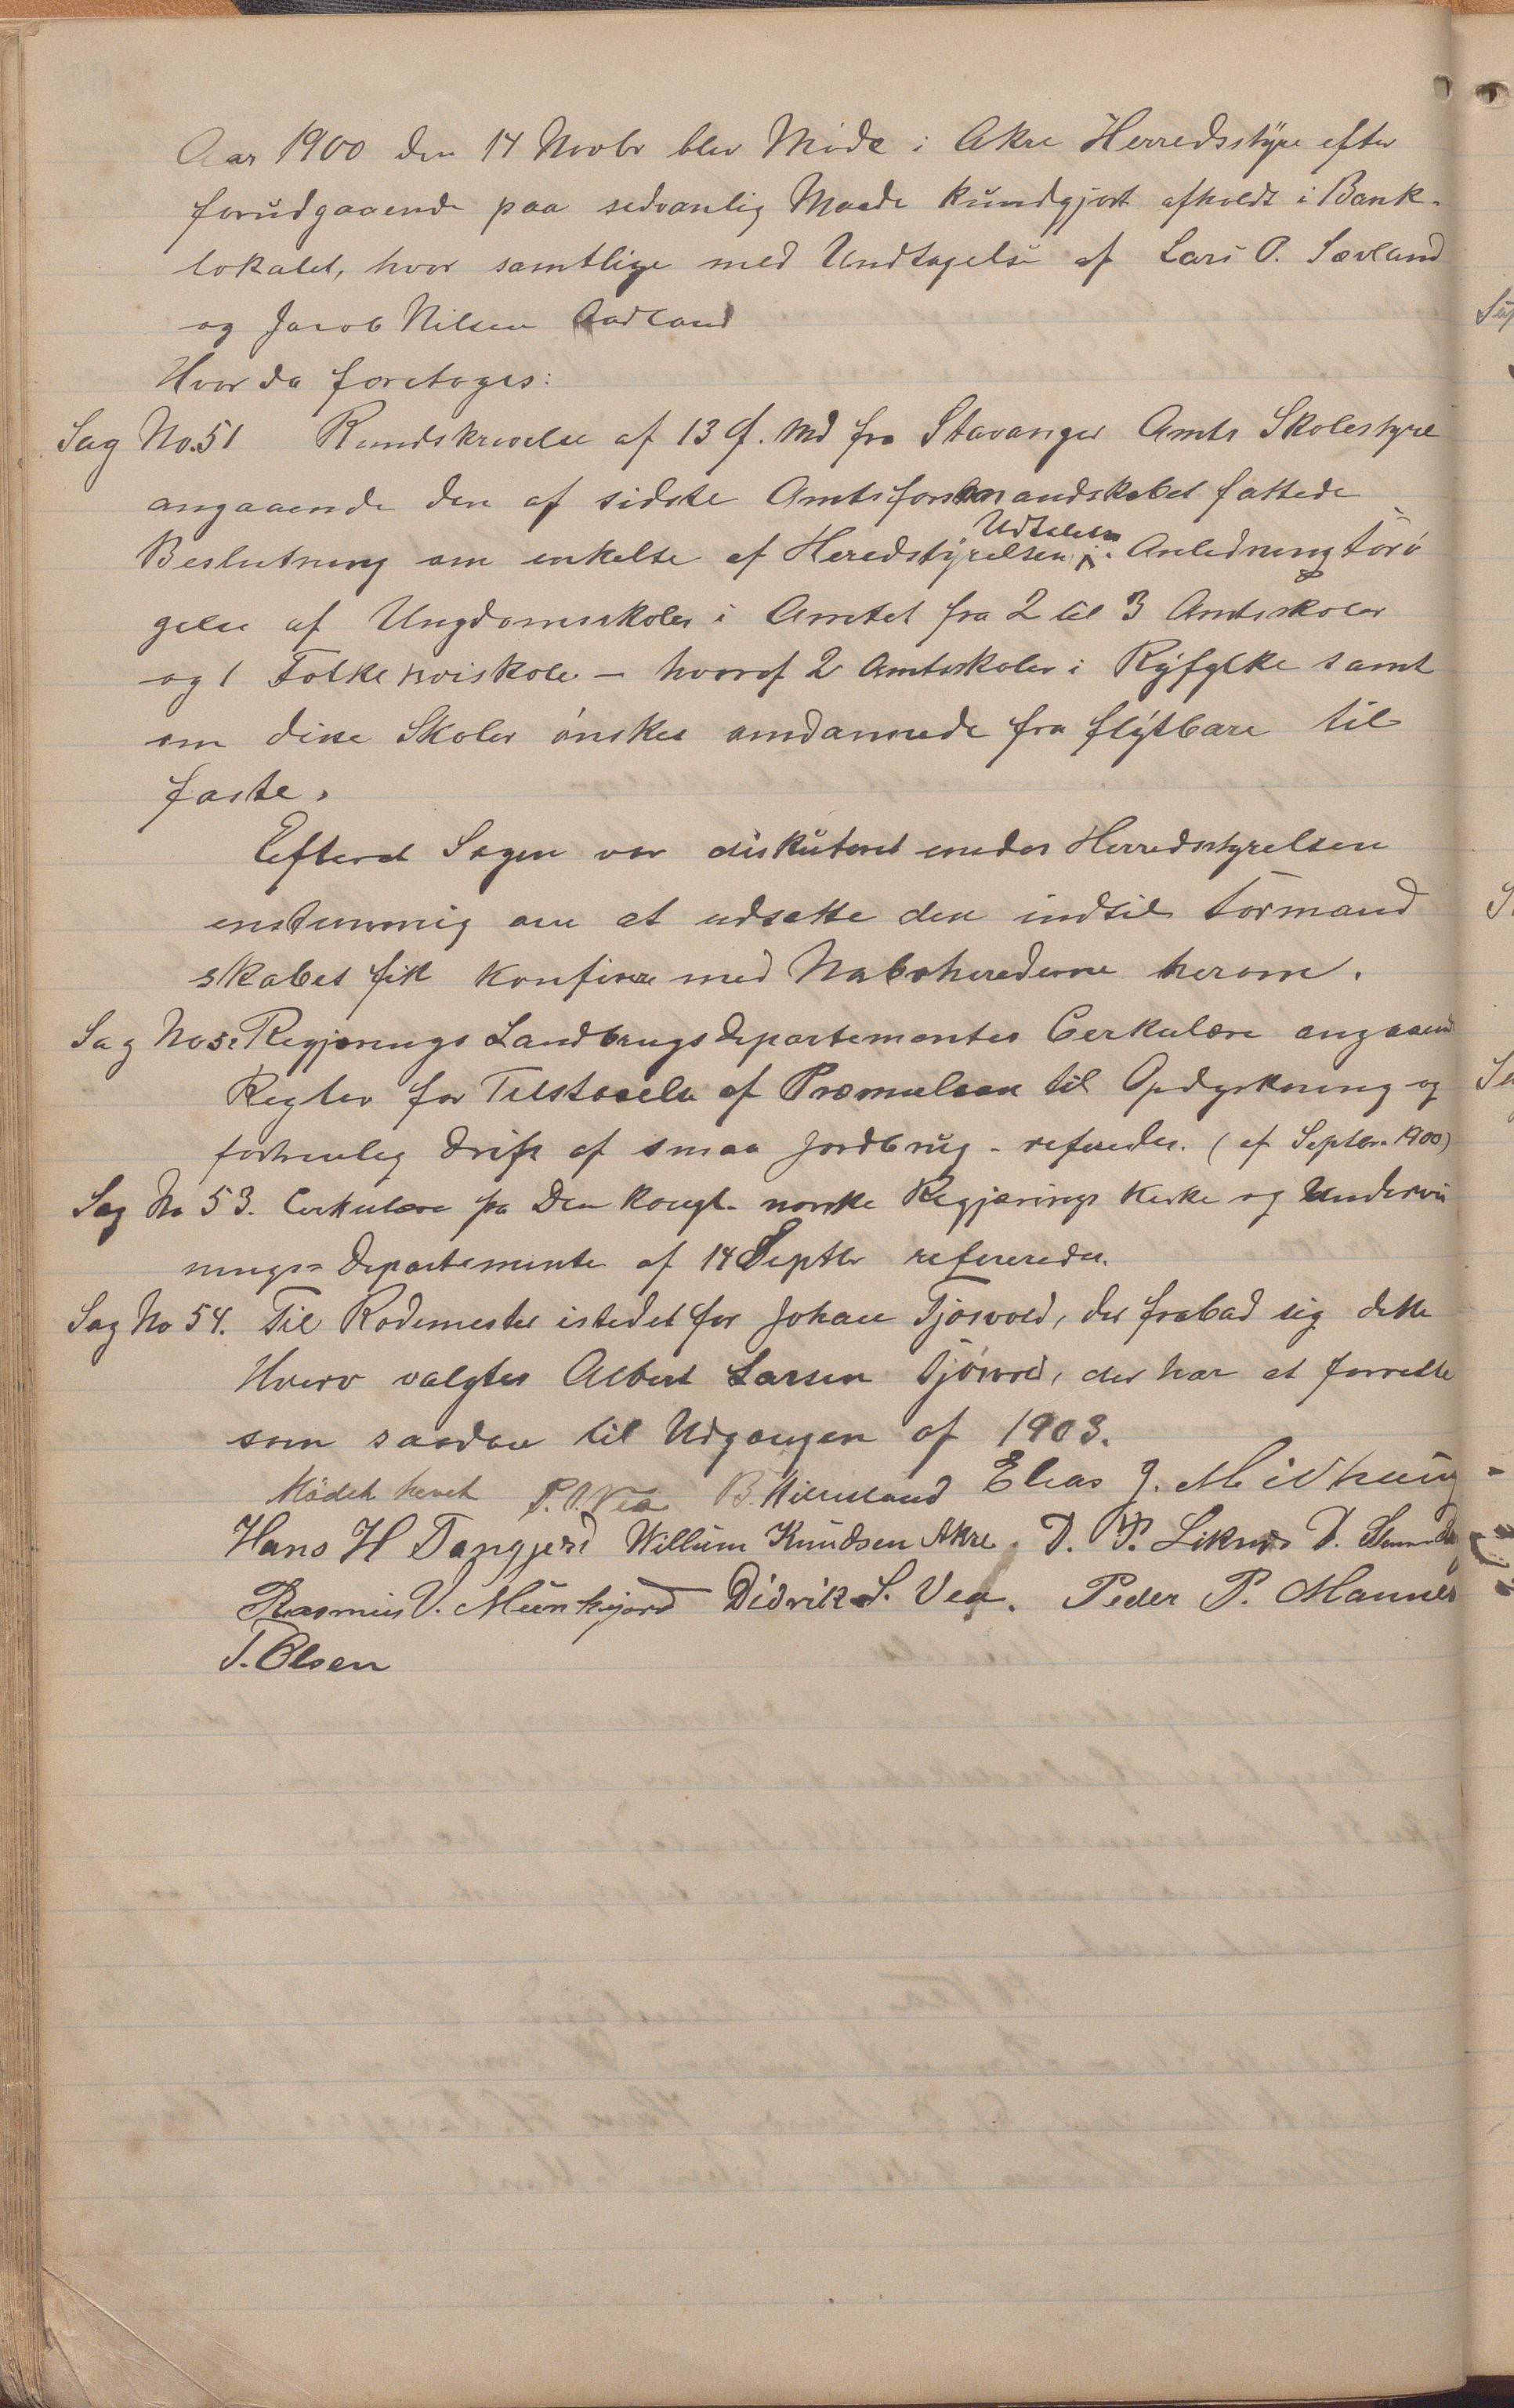 Aar 1900 den 14 Novbr blev Møde i Akre Herredsstyre efter
forudgaaende paa sedvanlig Maade kundgjort afholdt i Bank-
lokalet, hvor samtlige med Undtagelse af Lars O. Sævland
og Jacob Nilsen Aadland
Hvor da foretoges:
Sag No. 51 Rundskrivelse af 13 f. Md fra Stavanger Amts Skolestyre
angaaende den af sidste Amtsformandskabet fattede
Beslutning om enkelte af Heredstyrelsen Udtalelse i Anledning Forø
gelse af Ungdomsskoler i Amtet fra 2 til 3 Amtsskoler
og 1 Folkehøiskole – hvoraf 2 Amtsskoler i Ryfylke samt
om disse Skoler ønskes omdannede fra flytbare til
faste.
Efterat Sagen var diskuteret enedes Herredsstyrelsen
enstemmig om at udsette den indtil Formand
skabet fik konfirere med Naboherederne herom.
Sag No 52 Regjerings Landbrugsdepartementes Cerkulære angaaend
Regler for Tilstaaelse af Præmielaan til Opdyrkning og
forhenlig Drift af smaa Jordbrug - refereredes. (af Septbr. 1900)
Sag No 53. Cerkulære fra Den kongl. norske Regjerings Kirke og Undervis
nings= Departemente af 14 Septbr refereredes.
Sag No 54. Til Rodemester istedet for Johan Tjøsvold, der frabad sig dette
Hverv valgtes Albert Larsen Tjøsvold, der har at forrette
som saadan til Udgangen af 1903.
Mødet hevet P. O. Vea B. Hillesland Elias J. Midhaug
Hans H Tangjerd Willum Knudsen Akre. D. P. Liknes D.
Rasmus V. Munkejord Didrik S. Vea. Peder P. Mannes
T. Olsen